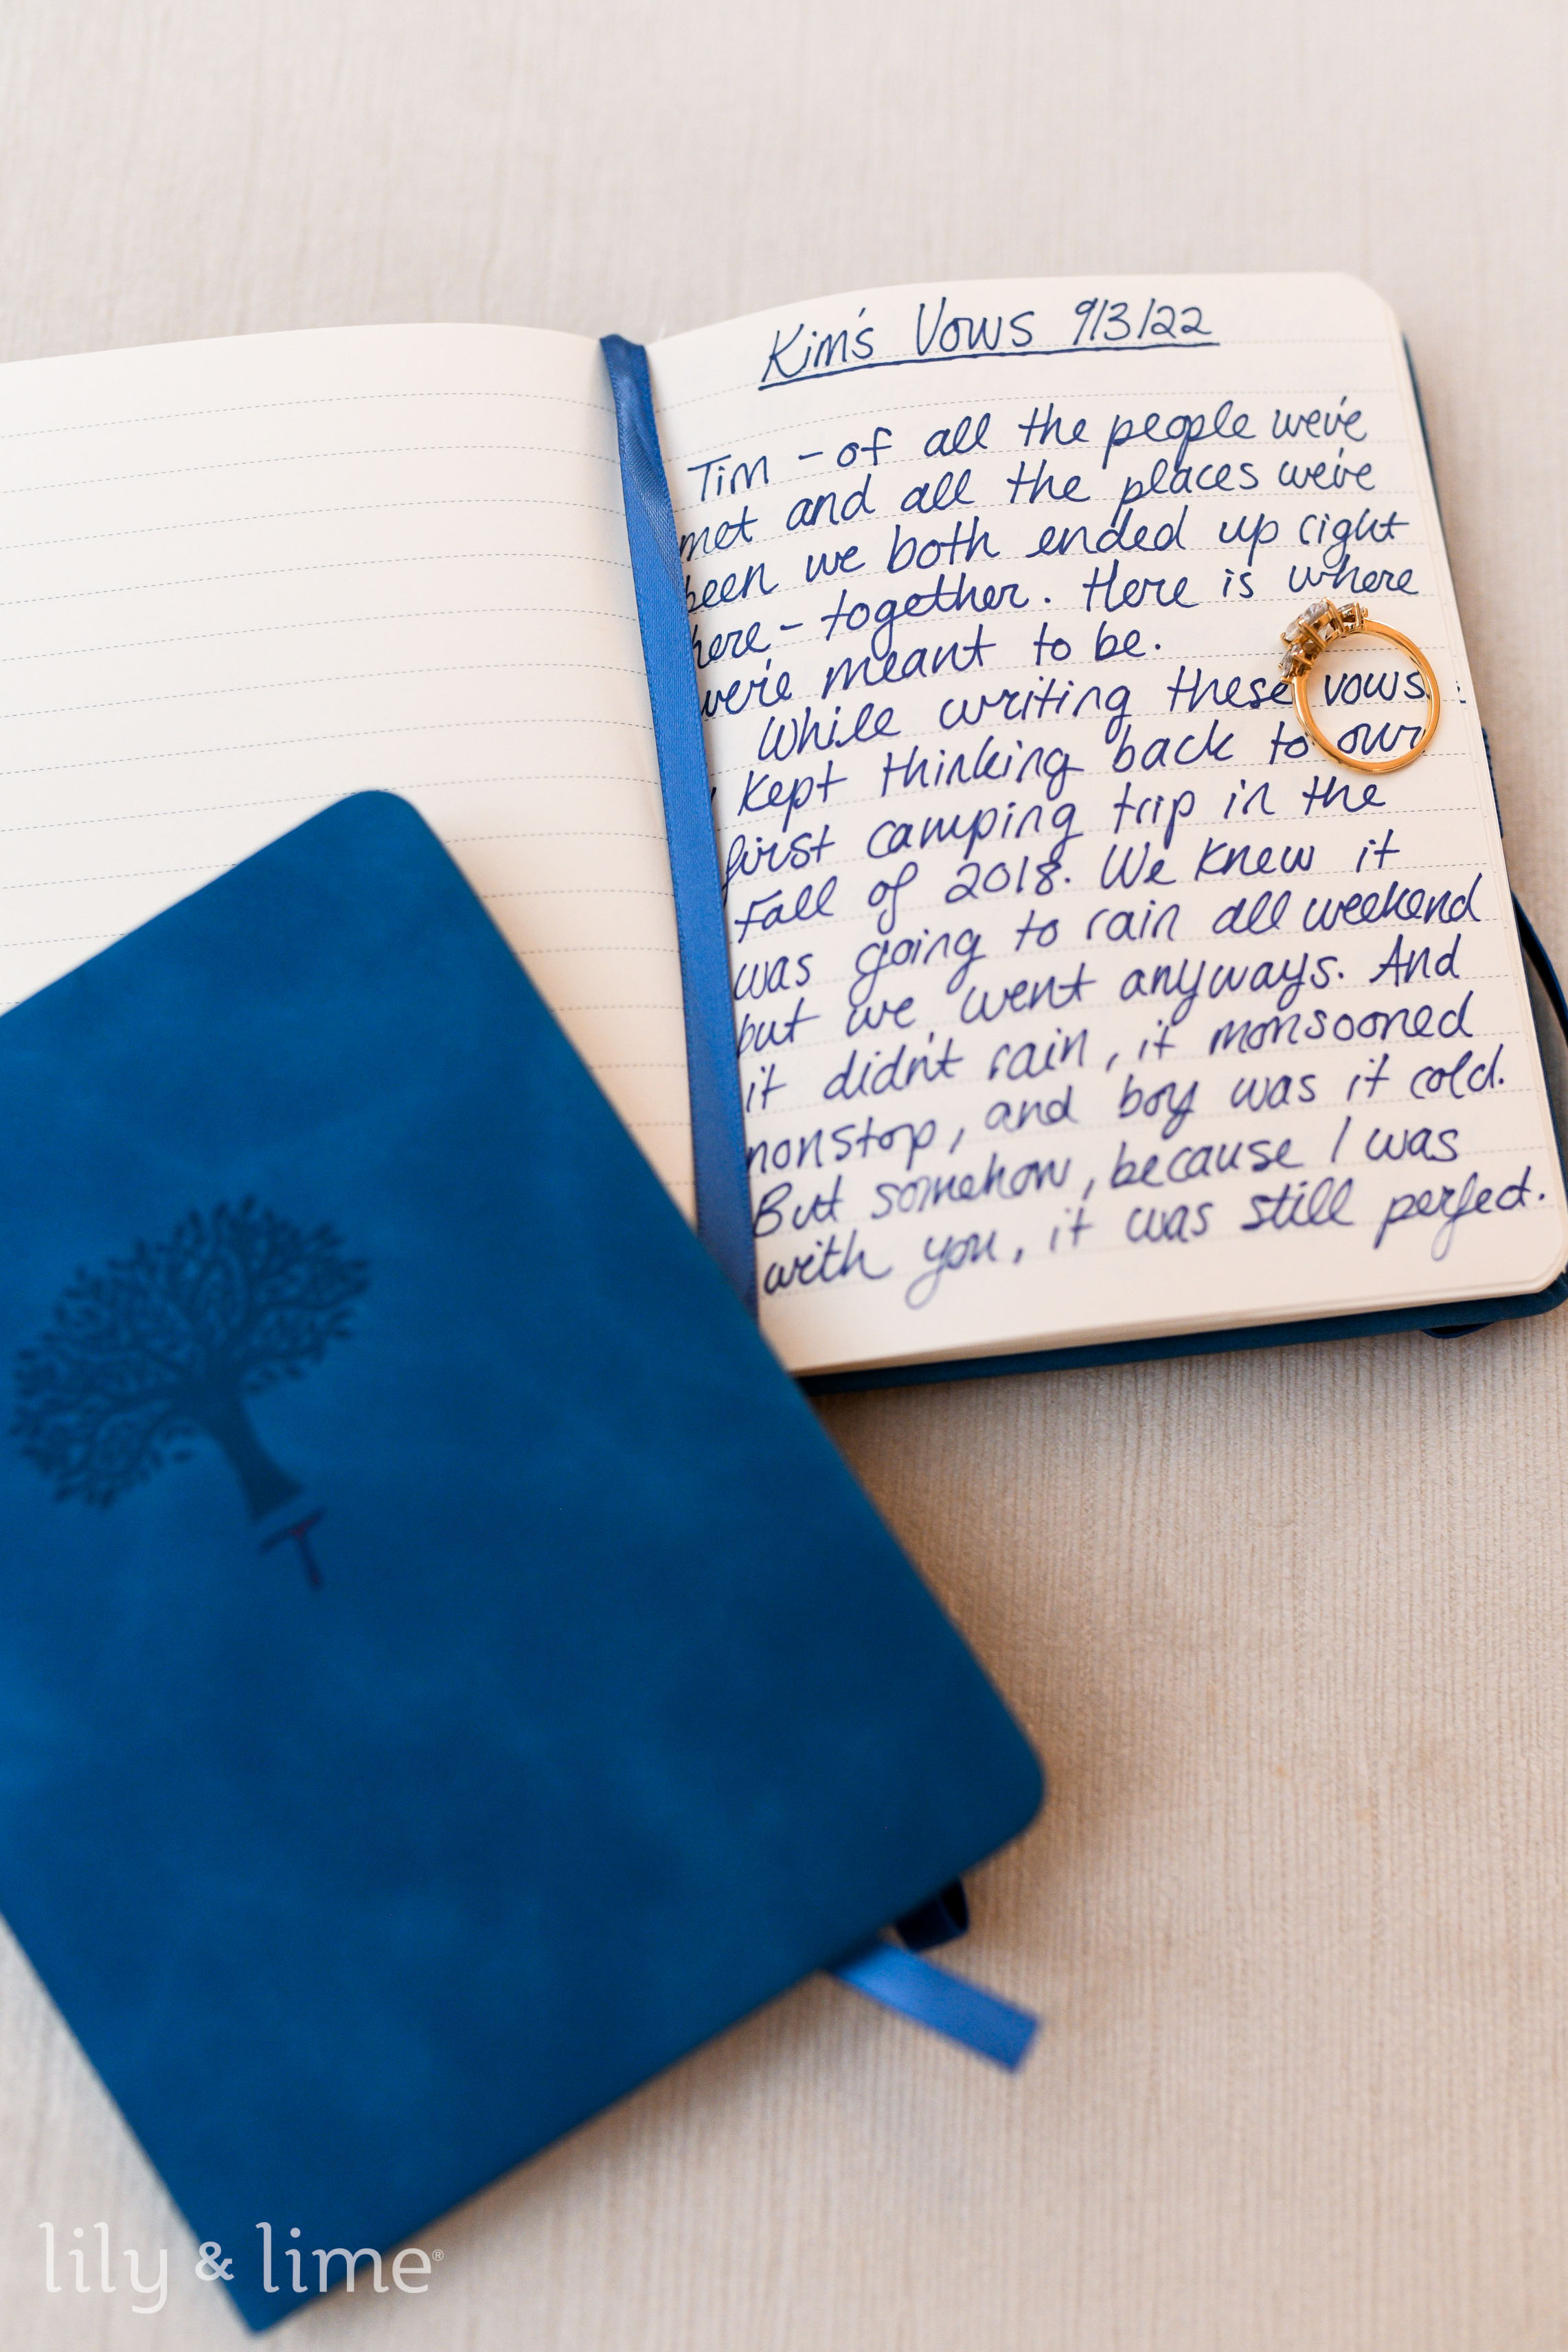 Kim's Vows 9/3/22
Tim - of all the people we've
met and all the places we've
been we both ended up right
here - together. Here is where
we're meant to be.
While writing these vows
I kept thinking back to our
first camping trip in the
Fall of 2018. We knew it
was going to rain all weekend
but we went anyways. And
it didn't rain, it monsooned
nonstop, and boy was it cold.
But somehow, because I was
with you, it was still perfect.
T
lily & lime®